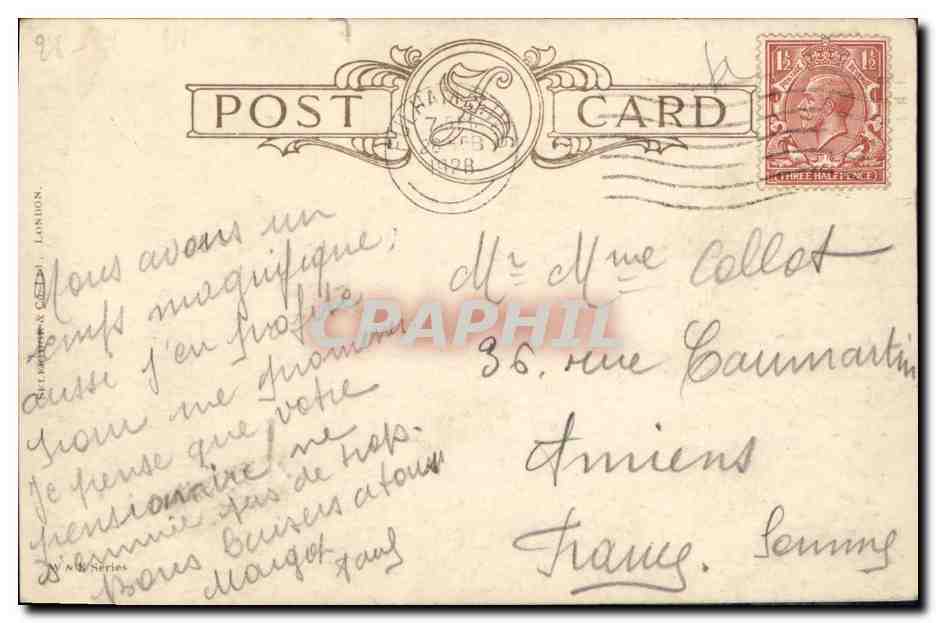 28
POST CARD
1½ 1½
THREE HALFPENCE
7
FEB
1928
SELFRIDGE & CO., LTD., LONDON.
W & K Series
CPAPHIL
Nous avons un
temps magnifique;
aussi j'en profite
pour me promener
Je pense que votre
pensionnaire ne
s'ennuie pas de trop.
Bons baisers à tous
Margot Paul
Mr Mme Collot
36, rue Caumartin
Amiens
France. Somme